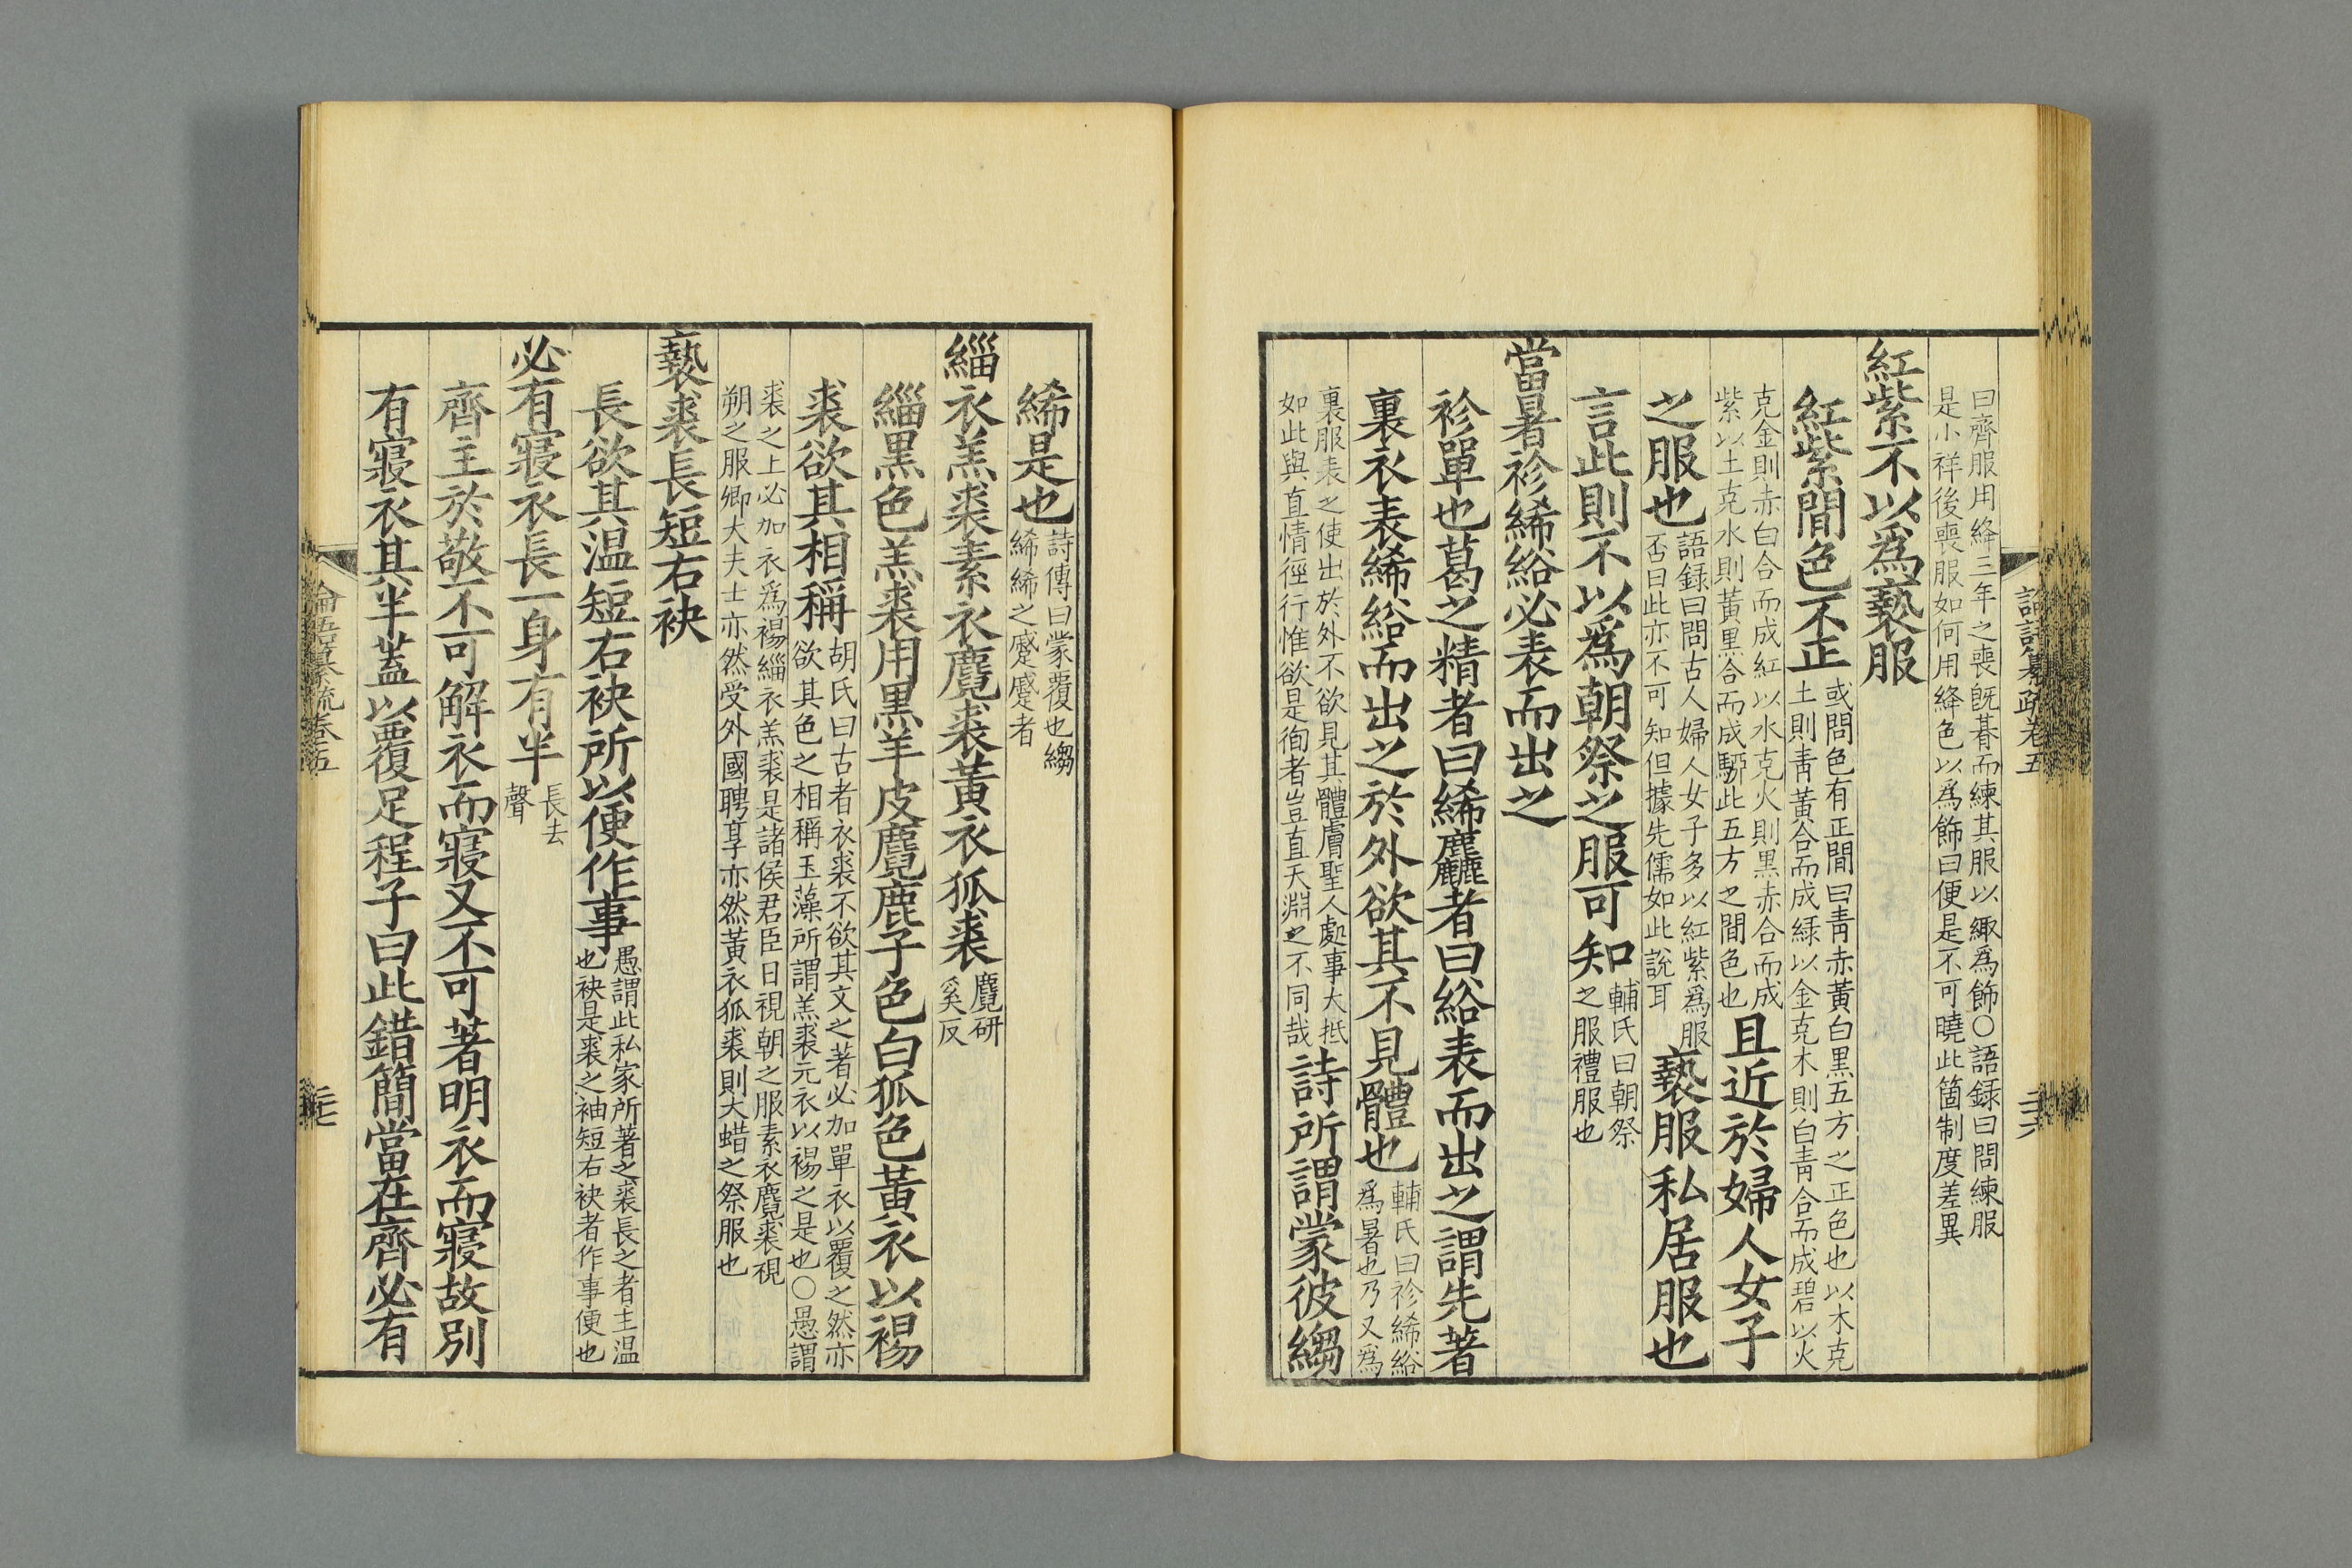 曰齊服用絳三年之喪旣朞而練其服以緅爲飾○語録曰問練服
是小祥後喪服如何用絳色以爲飾曰便是不可曉此箇制度差異
紅紫不以爲褻服
紅紫間色不正
或問色有正間曰青赤黃白黑五方之正色也以木克
土則青黃合而成緑以金克木則白青合而成碧以火
克金則赤白合而成紅以水克火則黑赤合而成
紫以土克水則黃黑合而成騮此五方之間色也
且近於婦人女子
之服也
語録曰問古人婦人女子多以紅紫爲服
否曰此亦不可知但據先儒如此說耳
褻服私居服也
言此則不以爲朝祭之服可知
輔氏曰朝祭
之服禮服也
當暑袗絺綌必表而出之
袗單也葛之精者曰絺麤者曰綌表而出之謂先著
裏衣表絺綌而出之於外欲其不見體也
輔氏曰袗絺綌
爲暑也乃又爲
裏服表之使出於外不欲見其體膚聖人處事大抵
如此與直情徑行惟欲是徇者豈直天淵之不同哉
詩所謂蒙彼縐
絺是也
詩傳曰蒙覆也縐
絺絺之蹙蹙者
緇衣羔裘素衣麑裘黃衣狐裘
麑研
奚反
緇黑色羔裘用黑羊皮麑鹿子色白狐色黃衣以裼
裘欲其相稱
胡氏曰古者衣裘不欲其文之著必加單衣以覆之然亦
欲其色之相稱玉藻所謂羔裘元衣以裼之是也○愚謂
裘之上必加衣爲裼緇衣羔裘是諸侯君臣日視朝之服素衣麑裘視
朔之服卿大夫士亦然受外國聘享亦然黃衣狐裘則大蜡之祭服也
褻裘長短右袂
長欲其温短右袂所以便作事
愚謂此私家所著之裘長之者主温
也袂是裘之袖短右袂者作事便也
必有寢衣長一身有半
長去
聲
齊主於敬不可解衣而寢又不可著明衣而寢故別
有寢衣其半蓋以覆足程子曰此錯簡當在齊必有
論語纂疏卷五